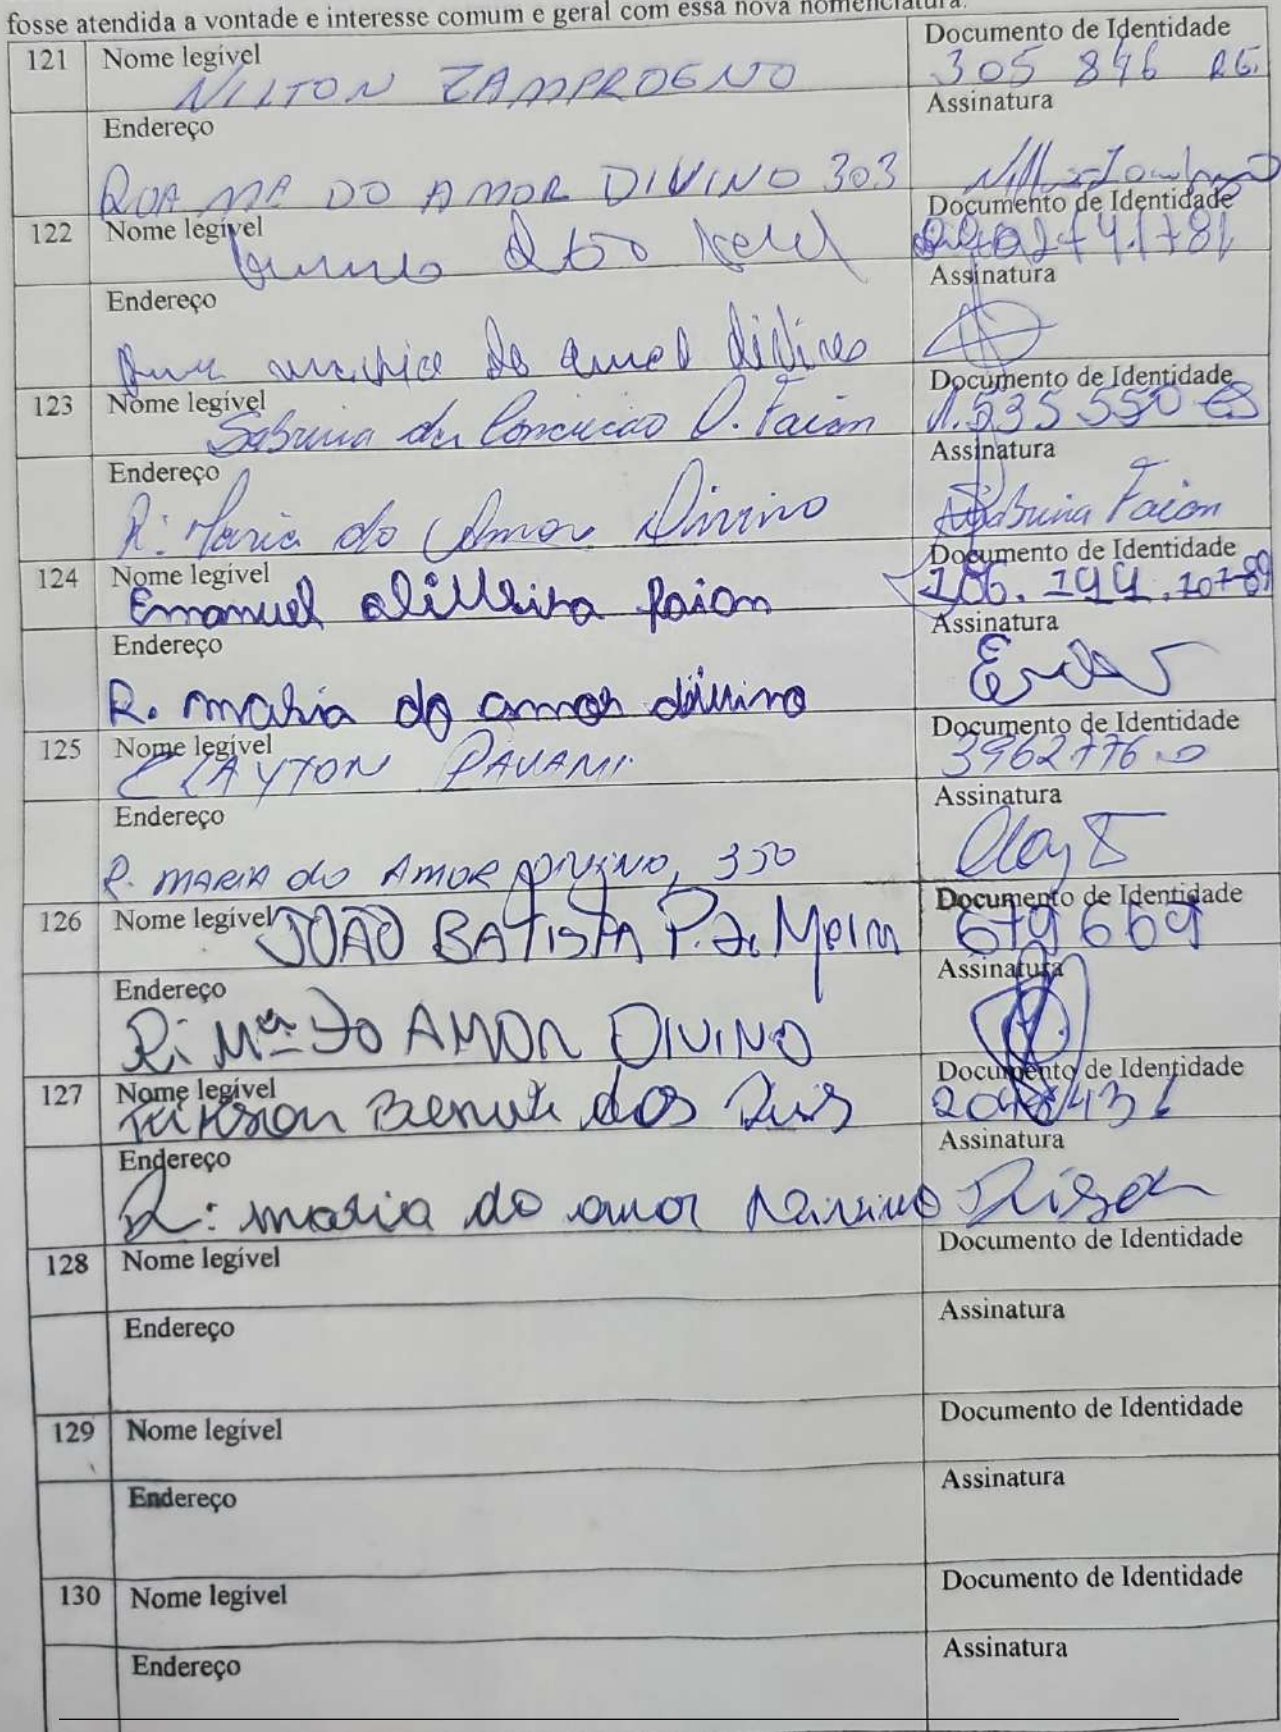 fosse atendida a vontade e interesse comum e geral com essa nova nomenclatura.
121 Nome legível NILTON ZAMPROGNO
Documento de Identidade 305 846 RG.
Endereço RUA Mª DO AMOR DIVINO 303
Assinatura
122 Nome legível
Documento de Identidade
Endereço do divino
Assinatura
123 Nome legível Sabrina da Conceicao O. Faian
Documento de Identidade 1.535 550 ES
Endereço R: Maria do Amor Divino
Assinatura Sabrina Faian
124 Nome legível Emanuel oliveira faian
Documento de Identidade 186.194.107-89
Endereço R. maria do amor divino
Assinatura
125 Nome legível CLAYTON PAVAMI
Documento de Identidade 3962776-0
Endereço R. MARIA do AMOR DIVINO, 350
Assinatura
126 Nome legível JOÃO BATISTA P.
Documento de Identidade 679669
Endereço R: Mª DO AMOR DIVINO
Assinatura
127 Nome legível dos
Documento de Identidade
Endereço R: maria do amor
Assinatura
128 Nome legível
Documento de Identidade
Endereço
Assinatura
129 Nome legível
Documento de Identidade
Endereço
Assinatura
130 Nome legível
Documento de Identidade
Endereço
Assinatura